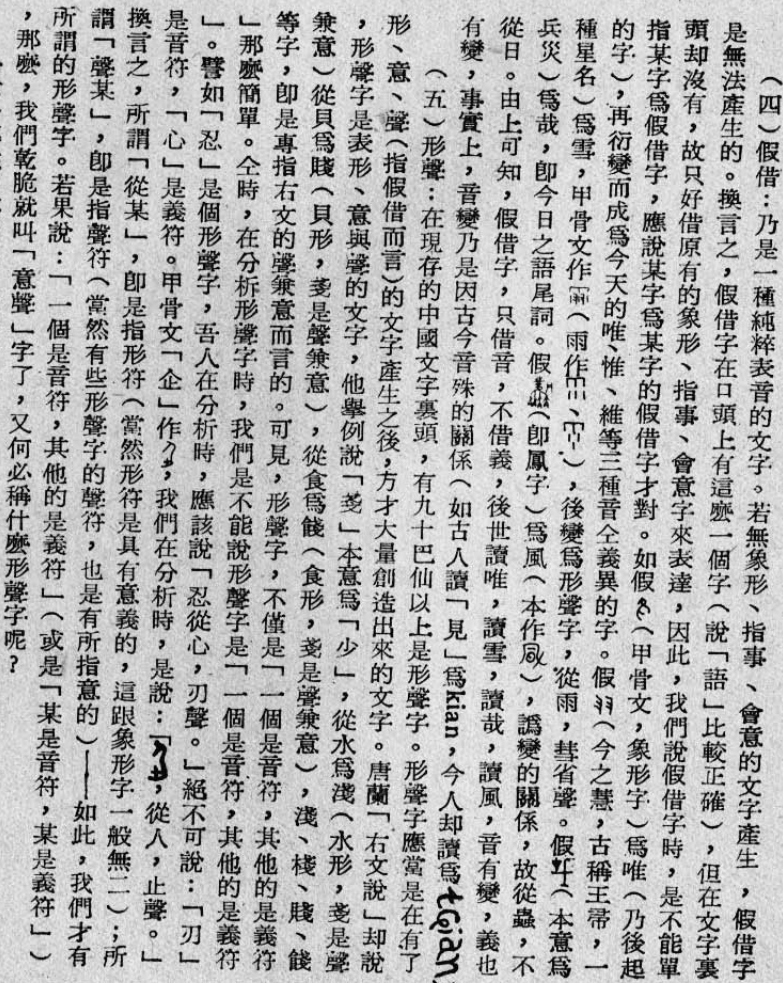 （四）假借：乃是一種純粹表音的文字。若無象形、指事、會意的文字產生，假借字
是無法產生的。換言之，假借字在口頭上有這麽一個字（說「語」比較正確），但在文字裏
頭却沒有，故只好借原有的象形、指事、會意字來表達，因此，我們說假借字時，是不能單
指某字爲假借字，應說某字爲某字的假借字才對。如假（甲骨文，象形字）爲唯（乃後起
的字），再衍變而成爲今天的唯、惟、維等三種音仝義異的字。假（今之慧，古稱王帚，一
種星名）爲雪，甲骨文作（雨作、），後變爲形聲字，從雨，彗省聲。假（本意爲
兵災）爲哉，卽今日之語尾詞。假（卽鳳字）爲風（本作），譌變的關係，故從蟲，不
從日。由上可知，假借字，只借音，不借義，後世讀唯，讀雪，讀哉，讀風，音有變，義也
有變，事實上，音變乃是因古今音殊的關係（如古人讀「見」爲kian，今人却讀爲tɕian）
（五）形聲：在現存的中國文字裏頭，有九十巴仙以上是形聲字。形聲字應當是在有了
形、意、聲（指假借而言）的文字產生之後，方才大量創造出來的文字。唐蘭「右文說」却說
，形聲字是表形、意與聲的文字，他舉例說「戔」本意爲「少」，從水爲淺（水形，戔是聲
兼意）從貝爲賤（貝形，戔是聲兼意），從食爲餞（食形，戔是聲兼意），淺、棧、賤、餞
等字，卽是專指右文的聲兼意而言的。可見，形聲字，不僅是「一個是音符，其他的是義符
」那麽簡單。仝時，在分析形聲字時，我們是不能說形聲字是「一個是音符，其他的是義符
」。譬如「忍」是個形聲字，吾人在分析時，應該說「忍從心，刃聲。」絕不可說：「刃」
是音符，「心」是義符。甲骨文「企」作，我們在分析時，是說：「，從人，止聲。」
換言之，所謂「從某」，卽是指形符（當然形符是具有意義的，這跟象形字一般無二）；所
謂「聲某」，卽是指聲符（當然有些形聲字的聲符，也是有所指意的）——如此，我們才有
所謂的形聲字。若果說：「一個是音符，其他的是義符」（或是「某是音符，某是義符」）
，那麽，我們乾脆就叫「意聲」字了，又何必稱什麽形聲字呢？